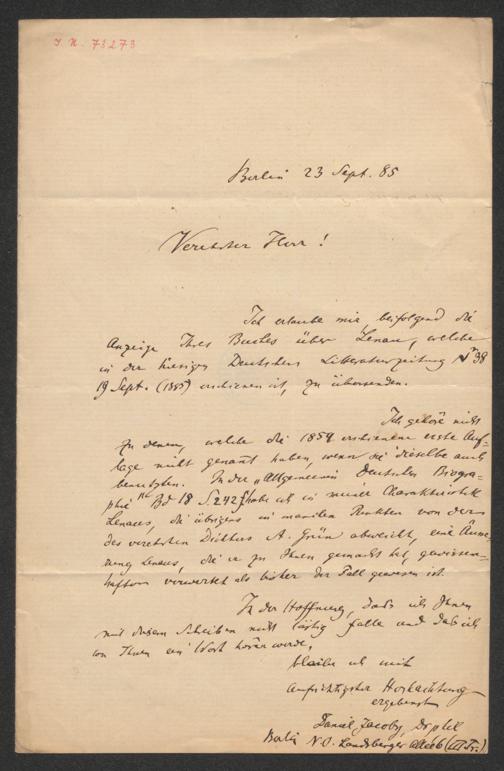 I. N. 73273
Berlin 23 Sept. 85
Verehrter Herr!
Ich erlaube mir beifolgend die
Anzeige Ihres Buches über Lenau, welche
in der hiesigen Deutschen Litteraturzeitung No 38
19 Sept. (1885) erschienen ist, zu übersenden.
Ich gehöre nicht
zu denen, welche die 1854 erschienene erste Auf-
lage nicht genannt haben, wenn sie dieselbe auch
benutzten. In der „Allgemeinen Deutschen Biogra-
phie" Bd 18 S. 242 habe ich in meiner Charakteristik
Lenaus, die übrigens in manchen Punkten von der
des verehrten Dichters A. Grün abweicht, eine Äusse-
rung Lenaus, die er zu Ihnen gemacht hat, gewissen-
hafter verwertet als bisher der Fall gewesen ist.
In der Hoffnung, dass ich Ihnen
mit diesem Schreiben nicht lästig falle und dass ich
von Ihnen ein Wort hören werde,
bleibe ich mit
aufrichtigster Hochachtung
ergebenst
Daniel Jacoby, Dr phil
Berlin N.O. Landsberger (III Tr.)